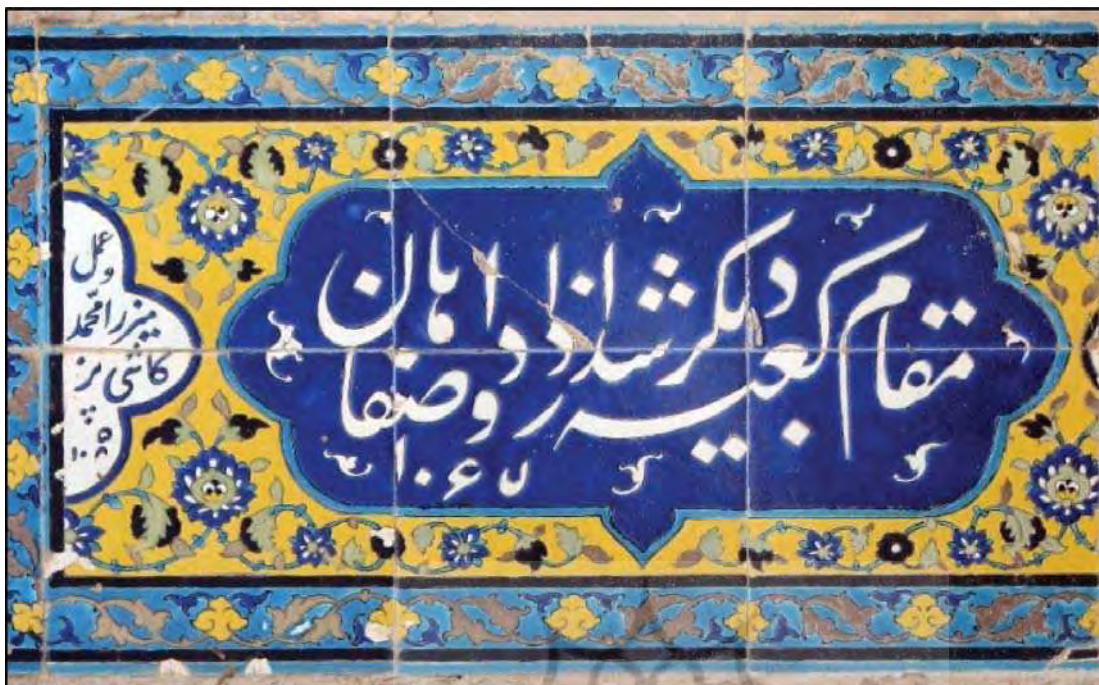 مقام کعبه دیگر شد از داود اصفاهان
۱۰۶۷
عمل
میرزا محمد
کاشی پز